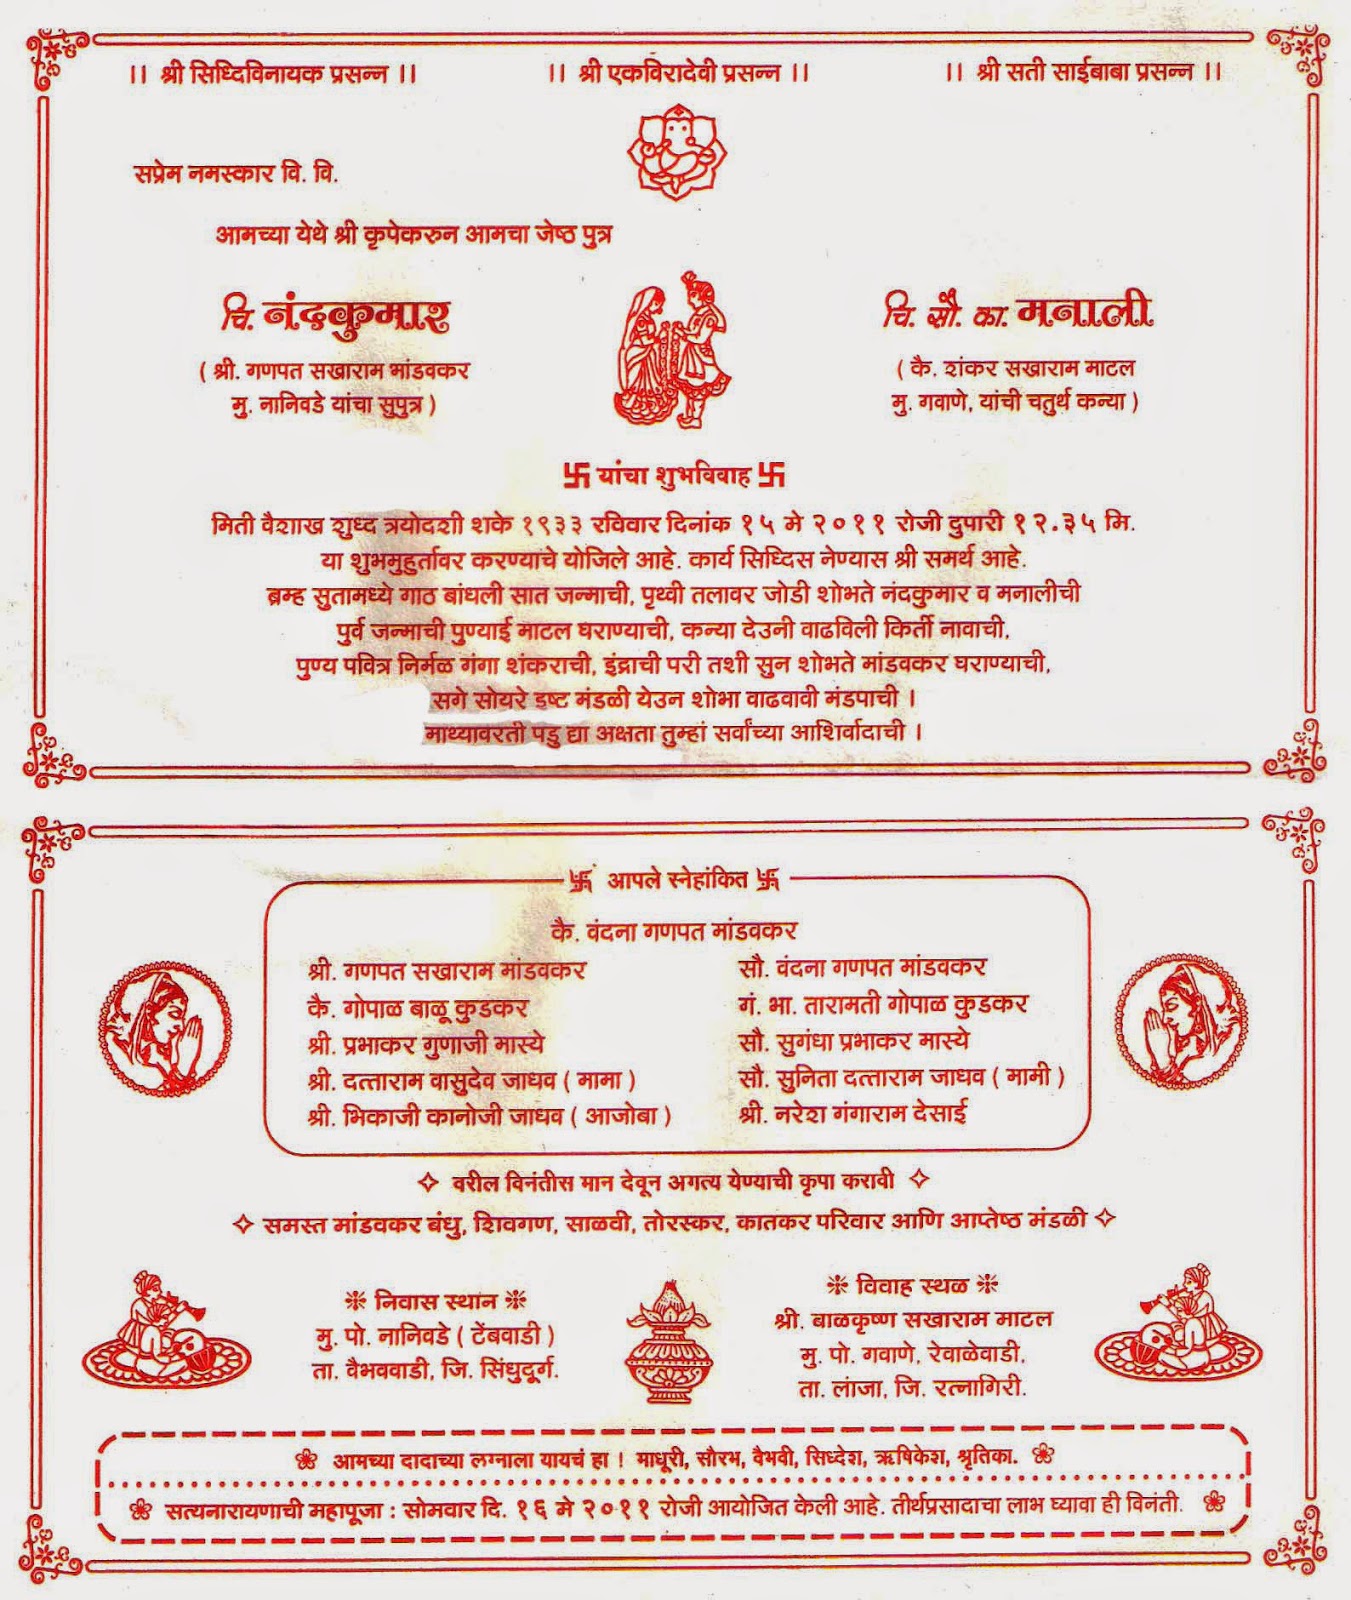 ।। श्री सिध्दिविनायक प्रसन्न ।।
।। श्री एकविरादेवी प्रसन्न ।।
।। श्री सती साईबाबा प्रसन्न ।।
सप्रेम नमस्कार वि. वि.
आमच्या येथे श्री कृपेकरुन आमचा जेष्ठ पुत्र
चि. नंदकुमार
( श्री. गणपत सखाराम मांडवकर
मु. नानिवडे यांचा सुपुत्र )
चि. सौ. का. मनाली
( कै. शंकर सखाराम माटल
मु. गवाणे, यांची चतुर्थ कन्या )
卐 यांचा शुभविवाह 卐
मिती वैशाख शुध्द त्रयोदशी शके १९३३ रविवार दिनांक १५ मे २०११ रोजी दुपारी १२.३५ मि.
या शुभमुहुर्तावर करण्याचे योजिले आहे. कार्य सिध्दिस नेण्यास श्री समर्थ आहे.
ब्रम्ह सुतामध्ये गाठ बांधली सात जन्माची, पृथ्वी तलावर जोडी शोभते नंदकुमार व मनालीची
पुर्व जन्माची पुण्याई माटल घराण्याची, कन्या देउनी वाढविली किर्ती नावाची,
पुण्य पवित्र निर्मळ गंगा शंकराची, इंद्राची परी तशी सुन शोभते मांडवकर घराण्याची,
सगे सोयरे इष्ट मंडळी येउन शोभा वाढवावी मंडपाची ।
माथ्यावरती पडु द्या अक्षता तुम्हां सर्वांच्या आशिर्वादाची ।
卐 आपले स्नेहांकित 卐
कै. वंदना गणपत मांडवकर
श्री. गणपत सखाराम मांडवकर
सौ. वंदना गणपत मांडवकर
कै. गोपाळ बाळू कुडकर
गं. भा. तारामती गोपाळ कुडकर
श्री. प्रभाकर गुणाजी मास्ये
सौ. सुगंधा प्रभाकर मास्ये
श्री. दत्ताराम वासुदेव जाधव ( मामा )
सौ. सुनिता दत्ताराम जाधव ( मामी )
श्री. भिकाजी कानोजी जाधव ( आजोबा )
श्री. नरेश गंगाराम देसाई
वरील विनंतीस मान देवून अगत्य येण्याची कृपा करावी
समस्त मांडवकर बंधु, शिवगण, साळवी, तोरस्कर, कातकर परिवार आणि आप्तेष्ठ मंडळी
निवास स्थान
मु. पो. नानिवडे ( टेंबवाडी )
ता. वैभववाडी, जि. सिंधुदूर्ग.
विवाह स्थळ
श्री. बाळकृष्ण सखाराम माटल
मु. पो. गवाणे, रेवाळेवाडी,
ता. लांजा, जि. रत्नागिरी.
आमच्या दादाच्या लग्नाला यायचं हा ! माधूरी, सौरभ, वैभवी, सिध्देश, ऋषिकेश, श्रृतिका.
सत्यनारायणाची महापूजा : सोमवार दि. १६ मे २०११ रोजी आयोजित केली आहे. तीर्थप्रसादाचा लाभ घ्यावा ही विनंती.